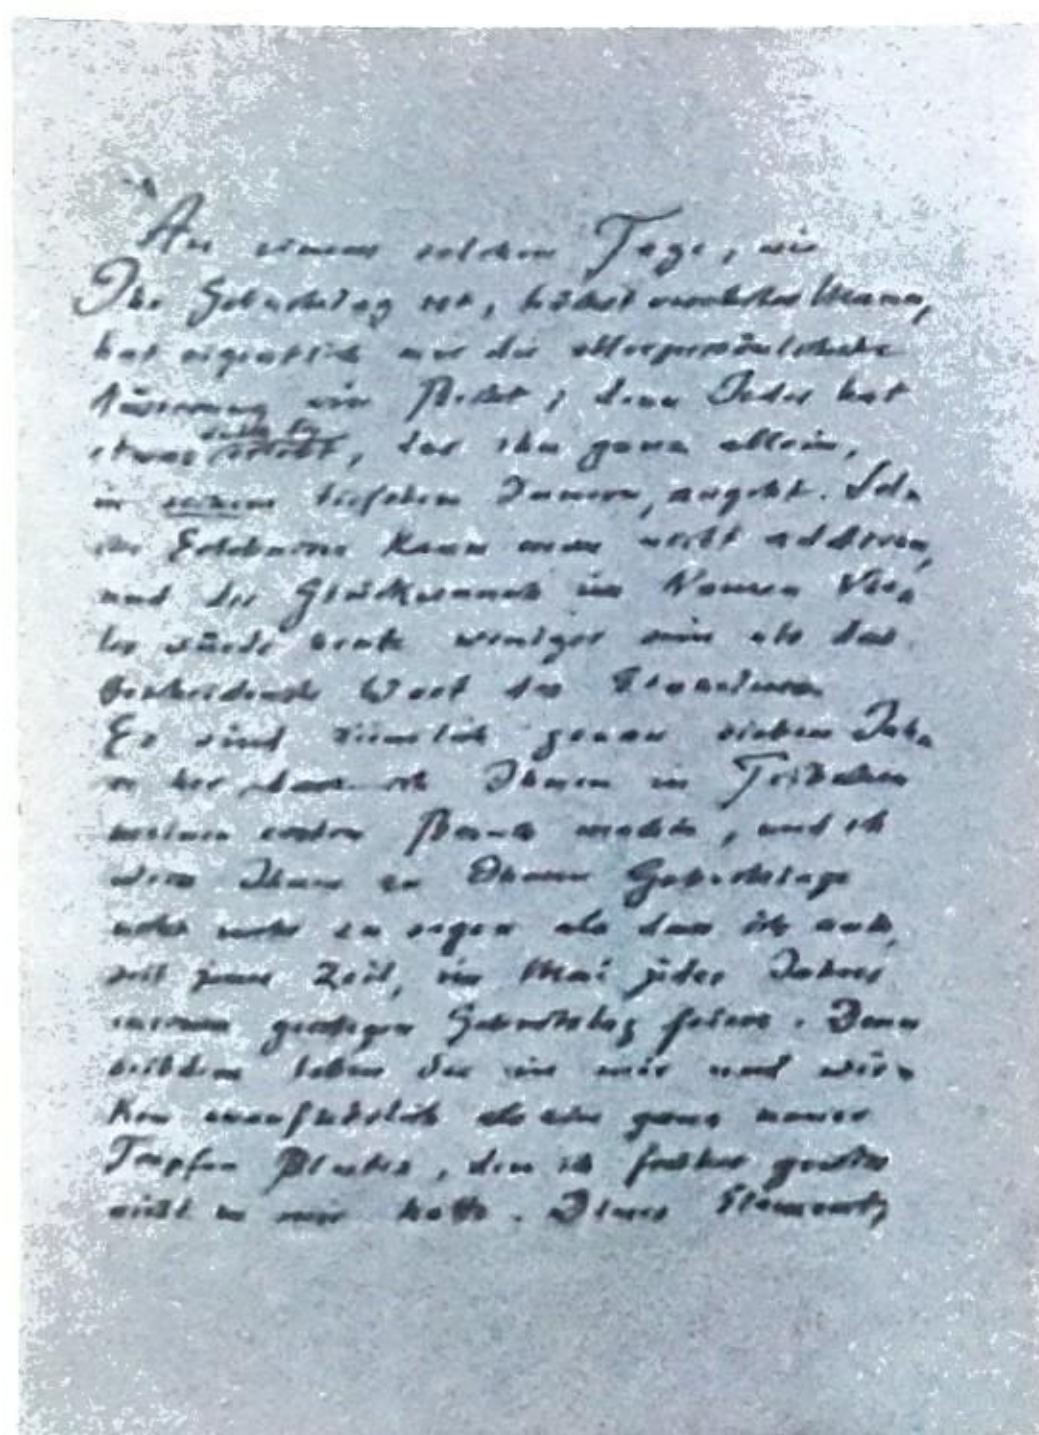 An einem solchen Tage, wie
Ihr Geburtstag ist, höchst verehrter Mann,
hat eigentlich nur die allerpersönlichste
Äusserung ein Recht; denn Jeder hat
etwas erlebt, das ihn ganz allein,
in seinem tiefsten Innern, angeht. Sol-
che Erlebnisse kann man nicht addieren,
und der Glückwunsch im Namen Vie-
ler würde heute weniger sein als das
bescheidenste Wort des Einzelnen.
Es sind nämlich genau sieben Jah-
re her, dass ich Ihnen in
meinen ersten Besuch machte, und ich
weiss Ihnen zu Ihrem Geburtstage
nicht mehr zu sagen als dass ich auch,
seit jener Zeit, im Mai jedes Jahres
meinen geistigen Geburtstag feiere. Denn
seitdem leben Sie in mir und wir-
ken unaufhörlich als ein ganz neuer
Tropfen Blutes, den ich früher
nicht in mir hatte. Dieses Element,